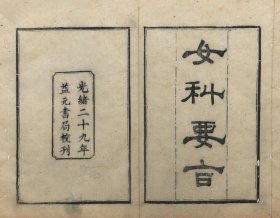 女科要言
光緒二十九年
益元書局校刊